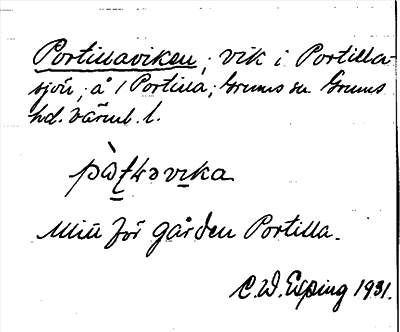 Portillaviken, vik i Portilla-
sjön, å 1 Portilla, Grums sn Grums
hd. Värml. l.
för gården Portilla.
C.W. Esping 1931.